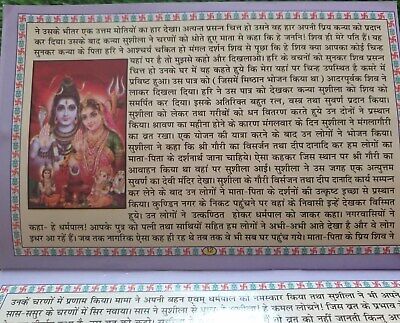 ने उसके भीतर एक उत्तम मोतियों का हार देखा अत्यन्त प्रसन्न चित्त हो उसने वह हार अपनी प्रिय कन्या को प्रदान
कर दिया। उसके बाद कन्या सुशीला ने चरणों को धोते हुए माता से कहा कि हे जननि! शिव ही मेरे पति हैं। यह
सुनकर कन्या के पिता हरि ने आश्चर्य चकित हो मंगल दर्शन शिव से पूछा कि हे शिव क्या आपका कोई चिन्ह
यहाँ पर है तो मुझसे कहो और दिखलाओ। हरि के वचनों को सुनकर शिव प्रसन्न
चित्त हो उनके घर में यह कहते हुये कि मेरा यहाँ पर चिन्ह उपस्थित है कमरे में
प्रविष्ट हुआ। उस पात्र को ( जिसमें मिष्ठान भोजन किया था ) आदरपूर्वक शिव ने
लाकर दिखला दिया। हरि ने उस पात्र को देखकर कन्या सुशीला को शिव को
समर्पित कर दिया। इसके अतिरिक्त बहुत रत्न, वस्त्र तथा सुवर्ण प्रदान किया।
सुशीला को लेकर तथा गरीबों को धन वितरण करते हुये उन दोनों ने प्रस्थान
किया। श्रावण का महीना होने के कारण मंगलवार के दिन सुशीला ने मंगलागौरी
का व्रत रखा। एक योजन की यात्रा करने के बाद उन लोगों ने भोजन किया।
सुशीला ने कहा कि श्री गौरी का विसर्जन तथा दीप दानादि कर हम लोगों का
माता-पिता के दर्शनार्थ जाना चाहिये। ऐसा कहकर जिस स्थान पर श्री गौरा का
आवाहन किया था वहाँ पर सुशीला आई। सुशीला ने उस जगह एक अत्युत्तम
सुवर्ण का देवी मंदिर देखा। सुशीला ने गौरी विसर्जन तथा दीप दानादि कार्य सम्पन्न
कर लेने के बाद उन लोगों ने माता-पिता के दर्शनों की उत्कृष्ट इच्छा से प्रस्थान
किया। कुण्डिन नगर के निकट पहुंचने पर वहाँ के निवासी इन्हें देखकर विस्मित
हुये। उन लोगों ने उत्कण्ठित होकर धर्मपाल को जाकर कहा। नगरवासियों ने
कहा- हे धर्मपाल! आपके पुत्र को पत्नी तथा साथियों सहित हम लोगों ने अभी-अभी आते देखा है और वे लोग
इधर आ रहे हैं। जब तक नागरिक ऐसा कह ही रहे थे तब तक वे भी सब घर पहुंच गये। माता-पिता के प्रिय शिव ने
उनके चरणों में प्रणाम किया। मामा ने अपनी बहन एवम् धर्मपाल को नमस्कार किया तथा सुशीला ने भी अपने
सास-ससुर के चरणों में सिर नवाया। सास ने सुशीला से पूछा हे कमल लोचने! जिस व्रत के प्रभाव